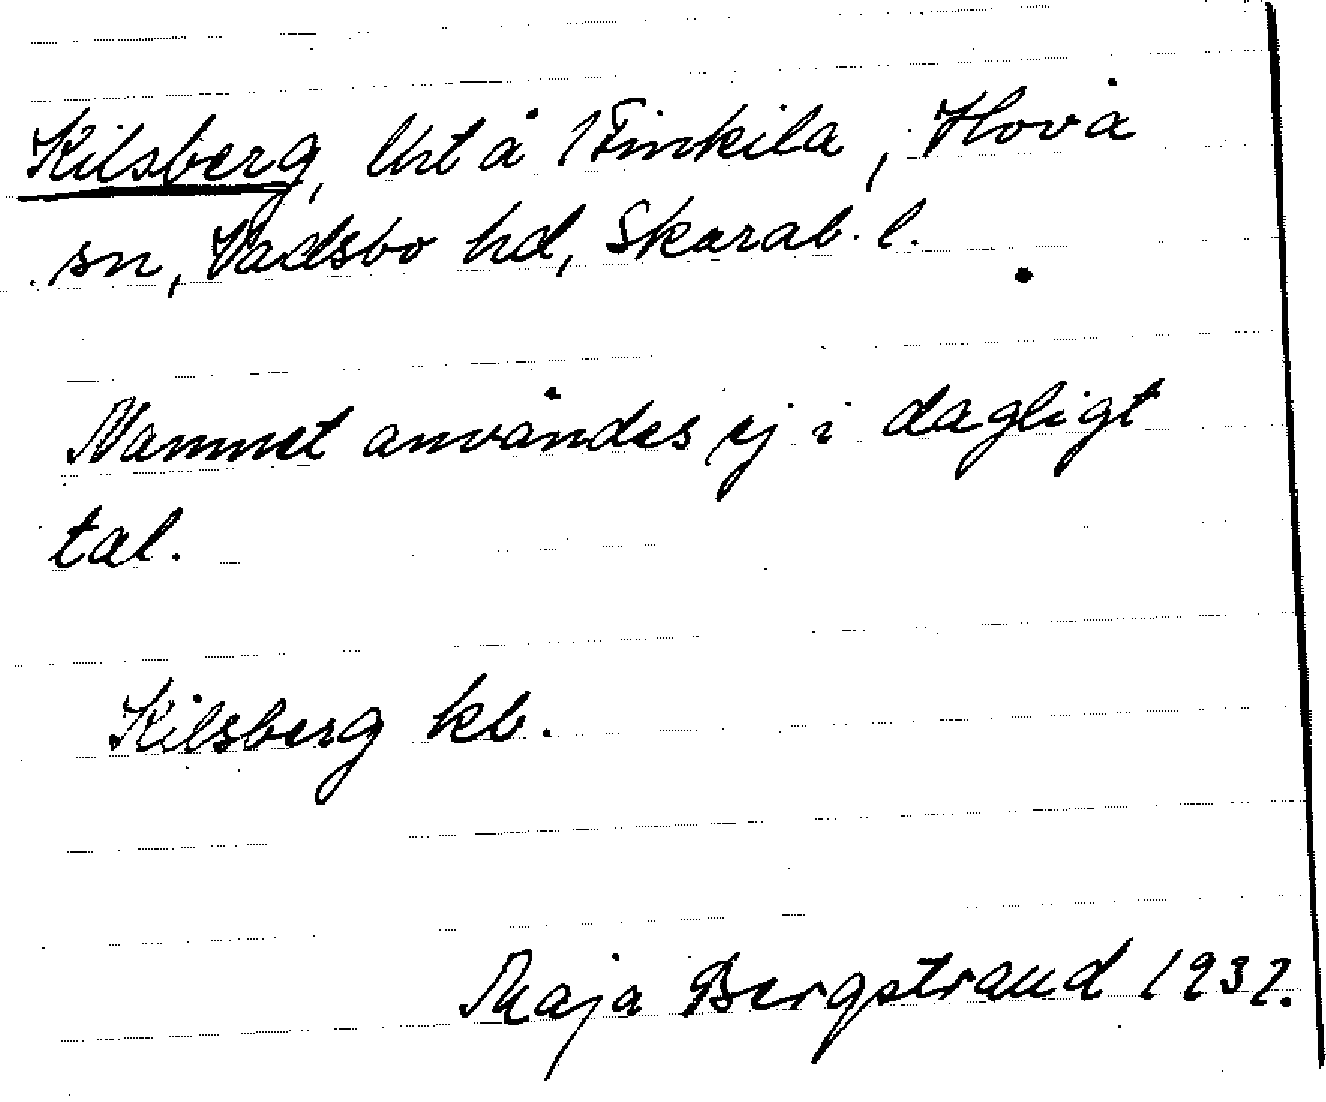 Kilsberg, lht å 1 Finkila, Hova
sn, Vadsbo hd, Skarab. l.
Namnet användes ej i dagligt
tal.
Kilsberg kb.
Maja Bergstrand 1932.